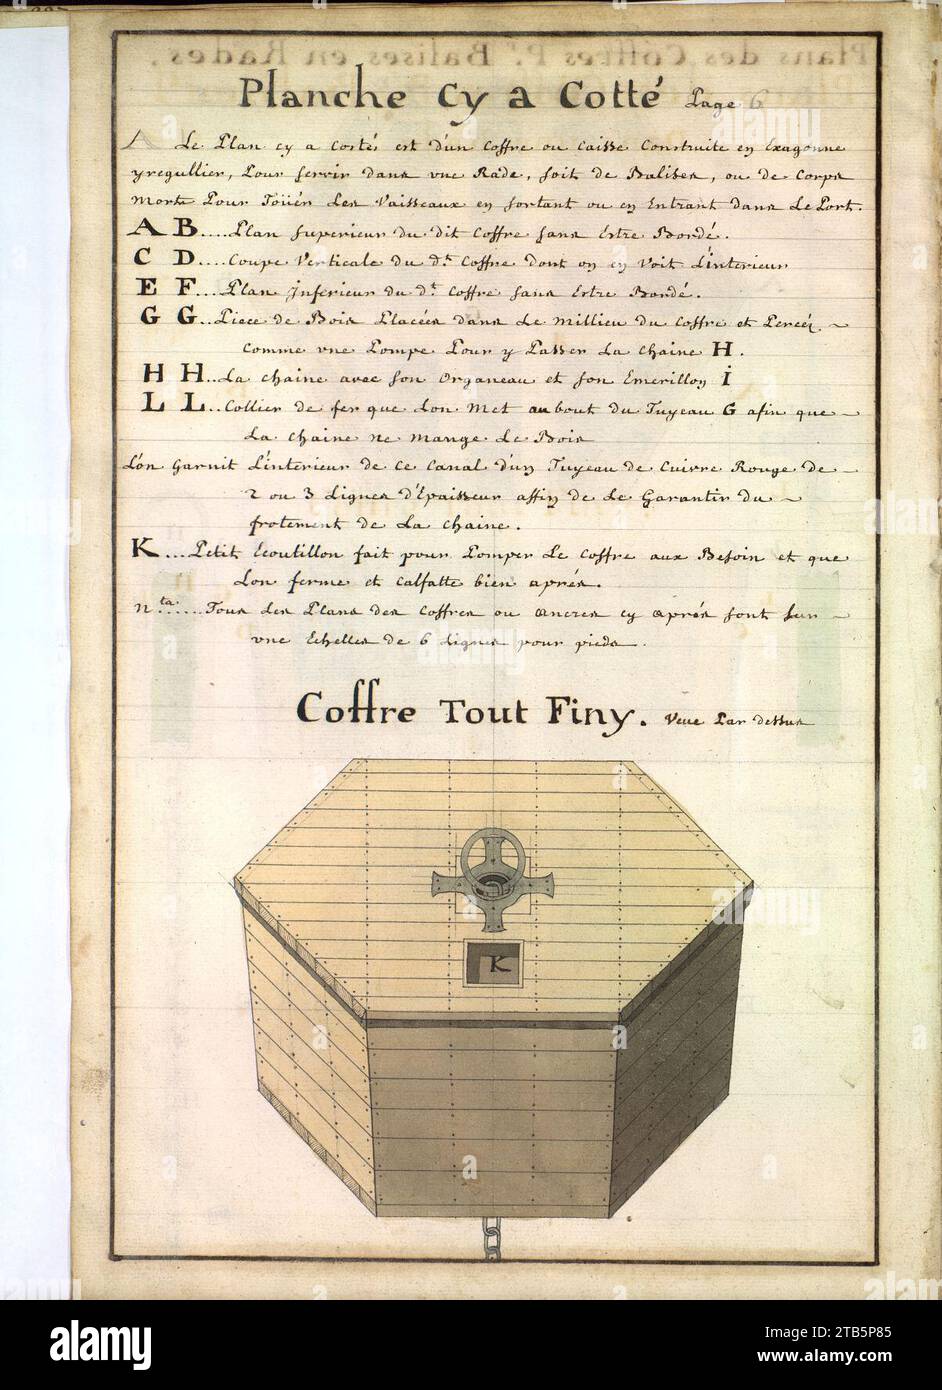 Plans des Coffres Pr. Balises en Rades.
Planche Cy a Cotté Page 6
A Le Plan cy a Costés est D'un Coffre ou Caisse Construite en Exagonne
yregullier, Pour servir Dans vne Rade, soit de Balises, ou de Corps
Morts Pour Toüer Les Vaisseaux en sortant ou en Entrant Dans Le Port.
A B.... Plan superieur Du Dit Coffre sans Estre Bordé.
C D.... Coupe Verticale Du dt. Coffre Dont on en Voit L'interieur
E F.... Plan jnferieur du dt. Coffre sans Estre Bordé.
G G... Piece de Bois Placées Dans Le Millieu Du Coffre et Percéz
Comme vne Pompe Pour y Passer La Chaine H.
H H... La Chaine avec son Organeau et son Emerillon i
L L... Collier de fer que L'on Met au bout du Tuyeau G afin que
La Chaine ne Mange Le Bois
L'on Garnit L'interieur de Ce Canal D'un Tuyeau de Cuivre Rouge de
2 ou 3 Lignes d'Epaisseur affin de Le Garantir Du
frotement de La Chaine.
K.... Petit Ecoutillon fait pour Pomper Le Coffre aux Besoin et que
L'on ferme et Calfatte bien aprés.
nta. .... Tous Les Plans Des Coffres ou Ancres Cy aprés sont sur
vne Echelles de 6 Lignes pour pieds.
Coffre Tout Finy. Veue Par dessus
K
alamy
alamy
Image ID: 2TB5P85
www.alamy.com